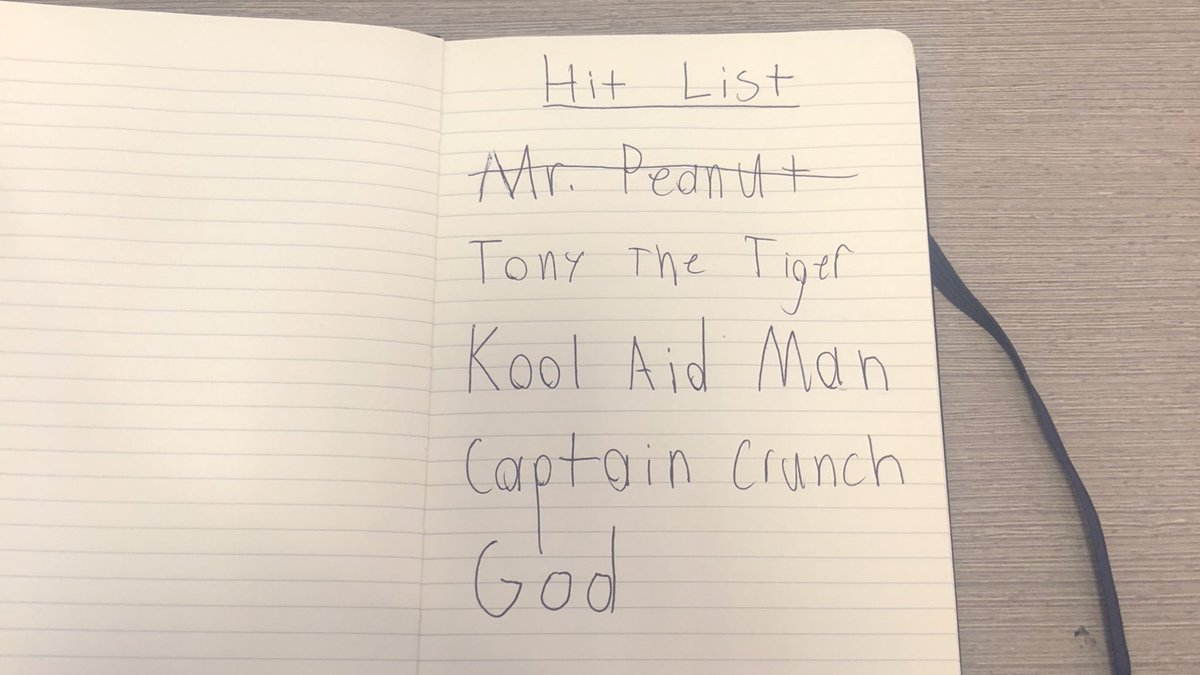 Hit List
Mr. Peanut
Tony The Tiger
Kool Aid Man
Captain Crunch
God